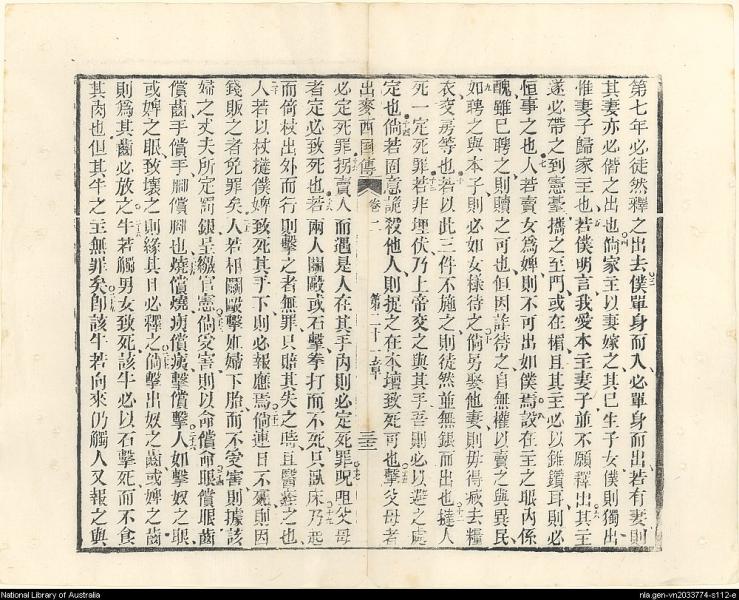 第七年必徒然釋之出去僕單身而入必單身而出若有妻則
其妻亦必偕之出也倘家主以妻嫁之其已生子女僕則獨出
惟妻子歸家主也若僕明言我愛本主妻子並不願釋出其主
遂必帶之到憲臺攜之至門或在楣且其主必以錐鑽耳則必
恒事之也人若賣女為婢則不可出如僕焉設在主之眼內係
醜雖已聘之則贖之可也但因詐待之自無權以賣之與異民
如聘之與本子則必如女樣待之倘另娶他妻則毋得减去糧
衣交房等也若以此三件不施之則徒然並無銀而出也撻人
死一定死罪若非埋伏乃上帝交之與其手吾則必以避之處
定也倘若固意詭殺他人則捉之在本壇致死可也擊父母者
出麥西國傳 卷二 第二十一章 三十三
必定死罪拐賣人而遇是人在其手內則必定死罪呪詛父母
者定必致死也若兩人鬬毆或石擊拳打而不死只臥床乃起
而倚杖出外而行則擊之者無罪只賠其失之時且醫痊之也
人若以杖撻僕婢致死其手下則必報應焉倘連日不死則因
錢販之者免罪矣人若相鬬毆擊妊婦下胎而不受害則據該
婦之丈夫所定罰銀呈繳官憲倘受害則以命償命眼償眼齒
償齒手償手脚償脚也燒償燒瘓償瘓擊償擊人如擊奴之眼
或婢之眼致壞之則緣其目必釋之倘擊出奴之齒或婢之齒
則為其齒必放之牛若觸男女致死該牛必以石擊死而不食
其肉也但其牛之主無罪矣卽該牛若向來仍觸人又報之與
National Library of Australia
nla.gen-vn2033774-s112-e